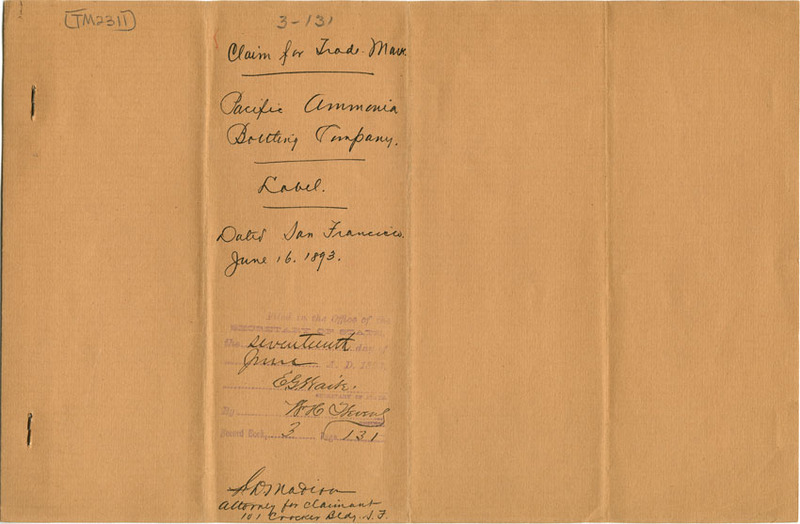 TM2311
3-131
Claim for Trade Mark
Pacific Ammonia
Bottling Company.
Label.
Dated San Francisco.
June 16. 1893.
Filed in the Office of the
SECRETARY OF STATE,
the seventeenth day of
June A. D. 1893
E G Waite.
SECRETARY OF STATE
By
Record Book, 3 Page 131
Madison
Attorney for claimant
101 Crocker Bldg. S.F.